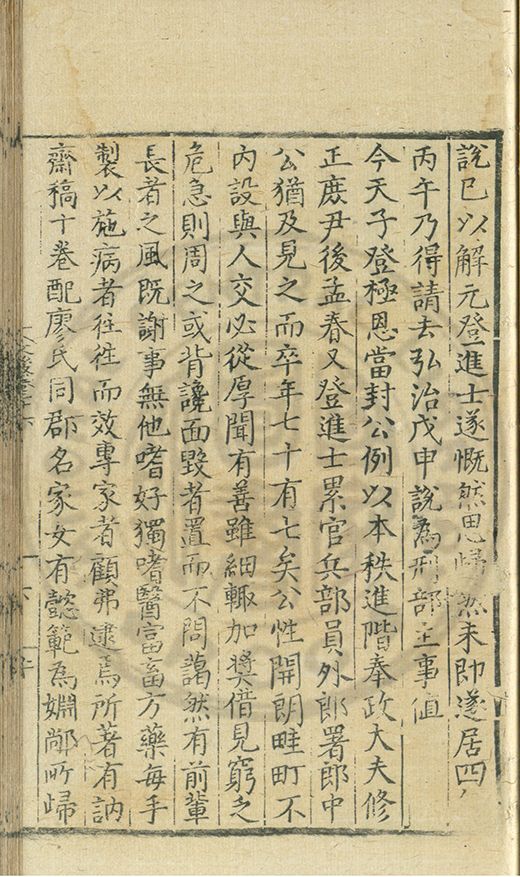 說已以解元登進士遂慨然思歸然未即遂居四
丙午乃得請去弘治戊申說為刑部主事值
今天子登極恩當封公例以本秩進階奉政大夫修
正庶尹後孟春又登進士累官兵部員外郎署郎中
公猶及見之而卒年七十有七矣公性開朗畦町不
內設與人交必從厚聞有善雖細輒加奬借見窮乏
危急則周之或背讒面毀者置而不問藹然有前輩
長者之風既謝事無他嗜好獨嗜醫富畜方藥每手
製以施病者往往而效專家者顧弗逮焉所著有訥
齋稿十卷配廖氏同郡名家女有懿範為婣鄰所歸